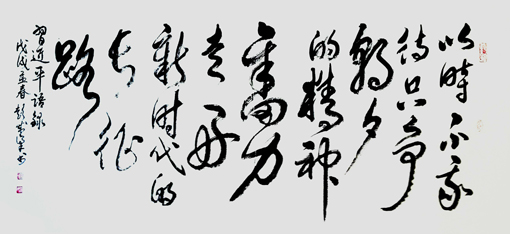 以时不我
待只争
朝夕
的精神
奮力
走好
新时代的
长征
路
習近平語録
戊戌孟春彭书